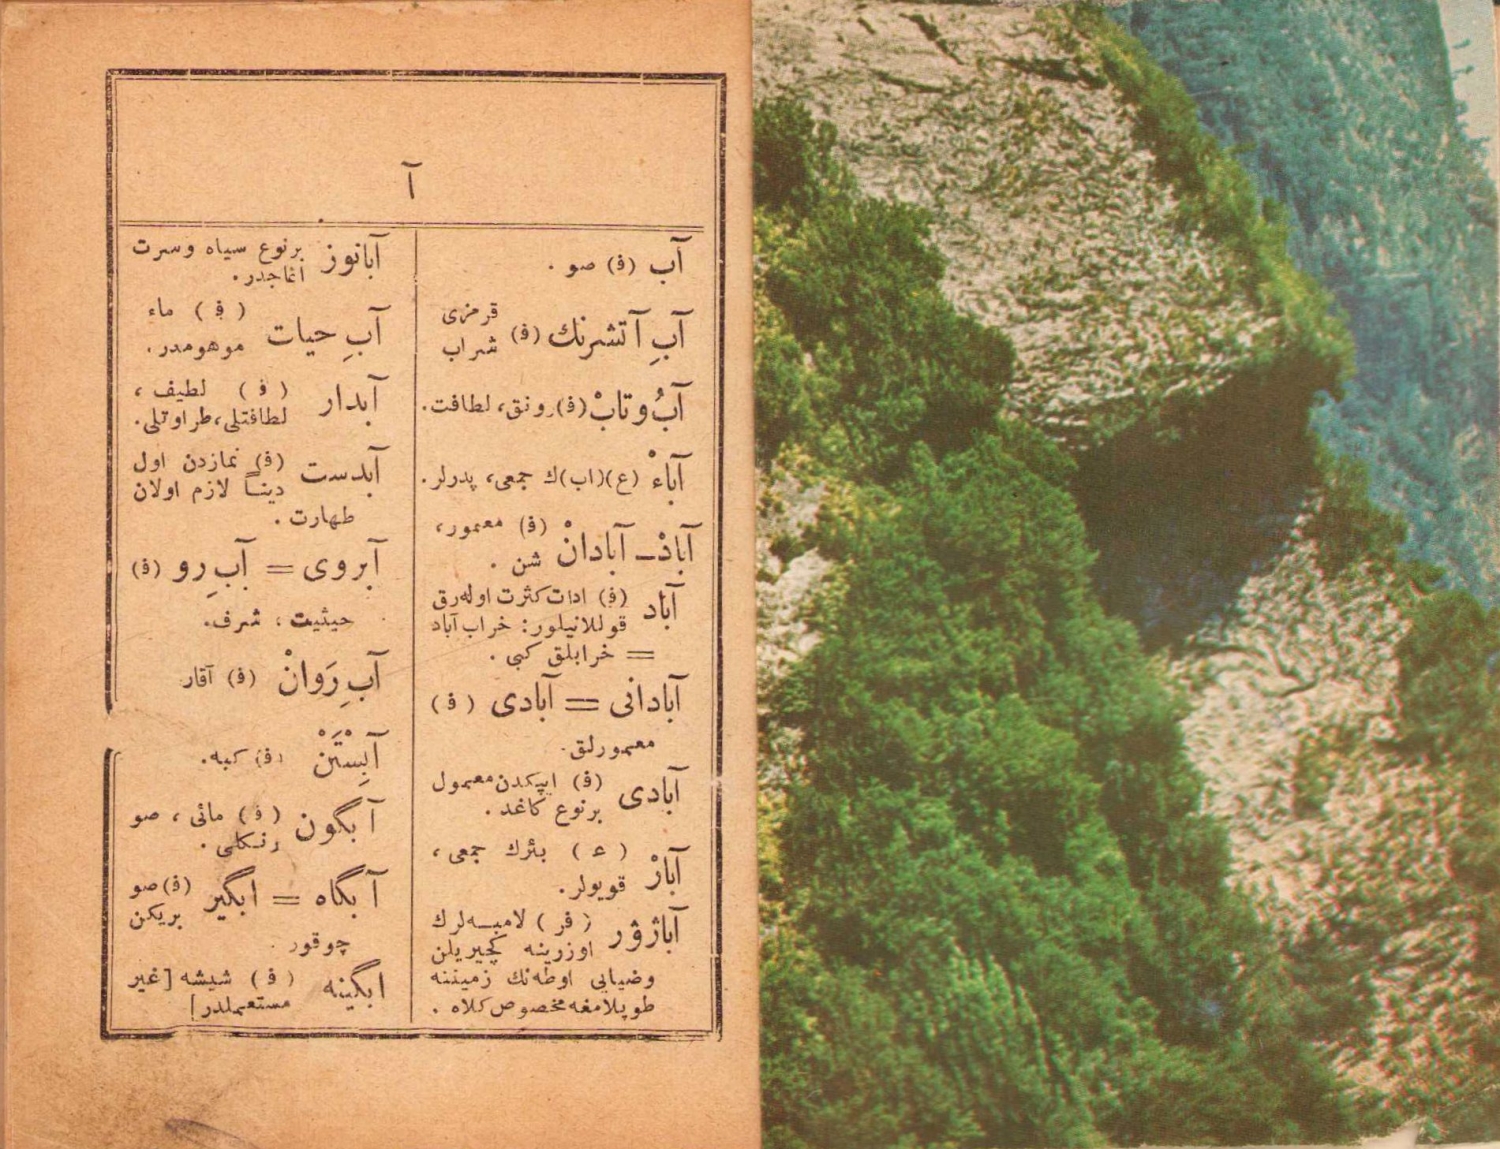 آ
آب (ف) صو .
آبِ آتشرنك (ف) قرمزی
شراب
آبُ وتابْ (ف) رونق، لطافت.
آباءْ (ع)(اب)ك جمعی، پدرلر.
آبادْ ــ آبادانْ (ف) معمور،
شن .
آباد (ف) ادات كثرت اوله‌رق
قوللانیلور: خراب آباد
= خرابلق كبی .
آبادانی = آبادی (ف)
معمورلق.
آبادی (ف) ایپكدن معمول
برنوع كاغد .
آبارْ (ع) بئرك جمعی،
قویولر.
آباژۇر (فر) لامبـه‌لرك
اوزرینه كچیریلن
وضیایی اوطه‌نك زمیننه
طوپلامغه مخصوص كلاه .
آبانوز برنوع سیاه وسرت
اغاجدر.
آبِ حیات (ف) ماء
موهومدر.
آبدار (ف) لطیف ،
لطافتلی، طراوتلی.
آبدست (ف) نمازدن اول
دیناً لازم اولان
طهارت .
آبروی = آبِ رو (ف)
حیثیت ، شرف.
آبِ رَوانْ (ف) آقار
آبِسْتَنْ (ف) كبه.
آبگون (ف) مائی ، صو
رنـكلی .
آبگاه = ابگیر (ف) صو
بریكن
چوقور .
ابگینه (ف) شیشه [غیر
مستعملدر]